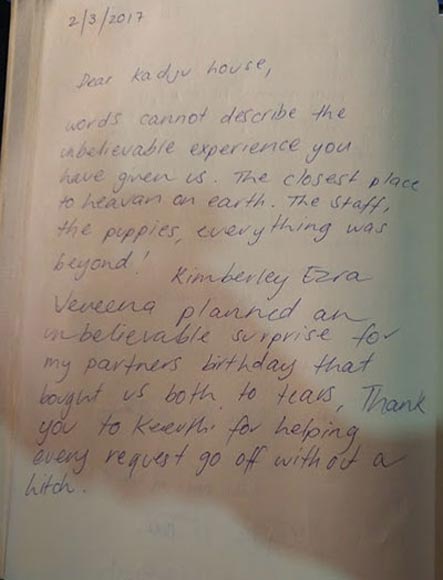 2/3/2017
Dear Kadju House,
words cannot describe the
unbelievable experience you
have given us. The closest place
to heavan on earth. The staff,
the puppies, everything was
beyond! Kimberley Ezra
Veneena planned an
unbelievable surprise for
my partners birthday that
bought us both to tears, Thank
you to Keerthi for helping
every request go off without a
hitch.